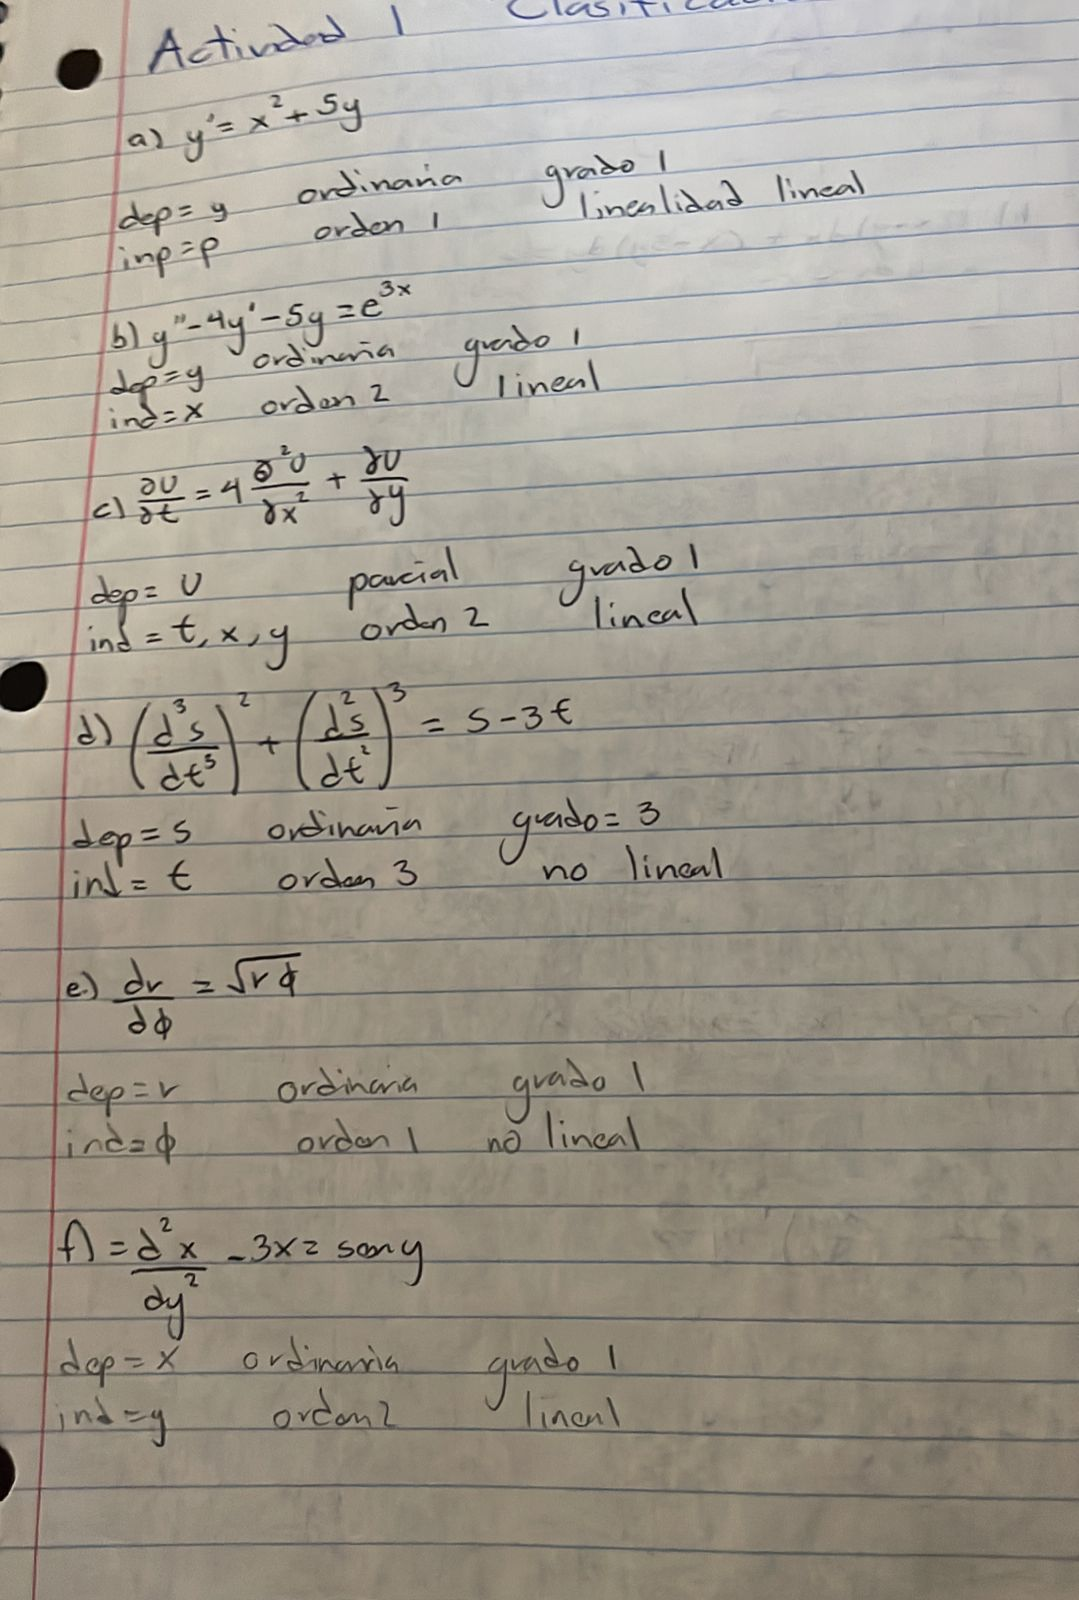 Actividad 1 Clasifica
a) y' = x² + 5y
dep = y ordinaria grado 1
inp = p orden 1 linealidad lineal
b) y'' - 4y' - 5y = e^3x
dep = y ordinaria grado 1
ind = x orden 2 lineal
c) ∂U/∂t = 4 ∂²U/∂x² + ∂U/∂y
dep = U parcial grado 1
ind = t, x, y orden 2 lineal
d) (d³s/dt³)² + (d²s/dt²)³ = s - 3t
dep = s ordinaria grado = 3
ind = t orden 3 no lineal
e) dr/dϕ = √rϕ
dep = r ordinaria grado 1
ind = ϕ orden 1 no lineal
f) = d²x/dy² - 3x = sen y
dep = x ordinaria grado 1
ind = y orden 2 lineal